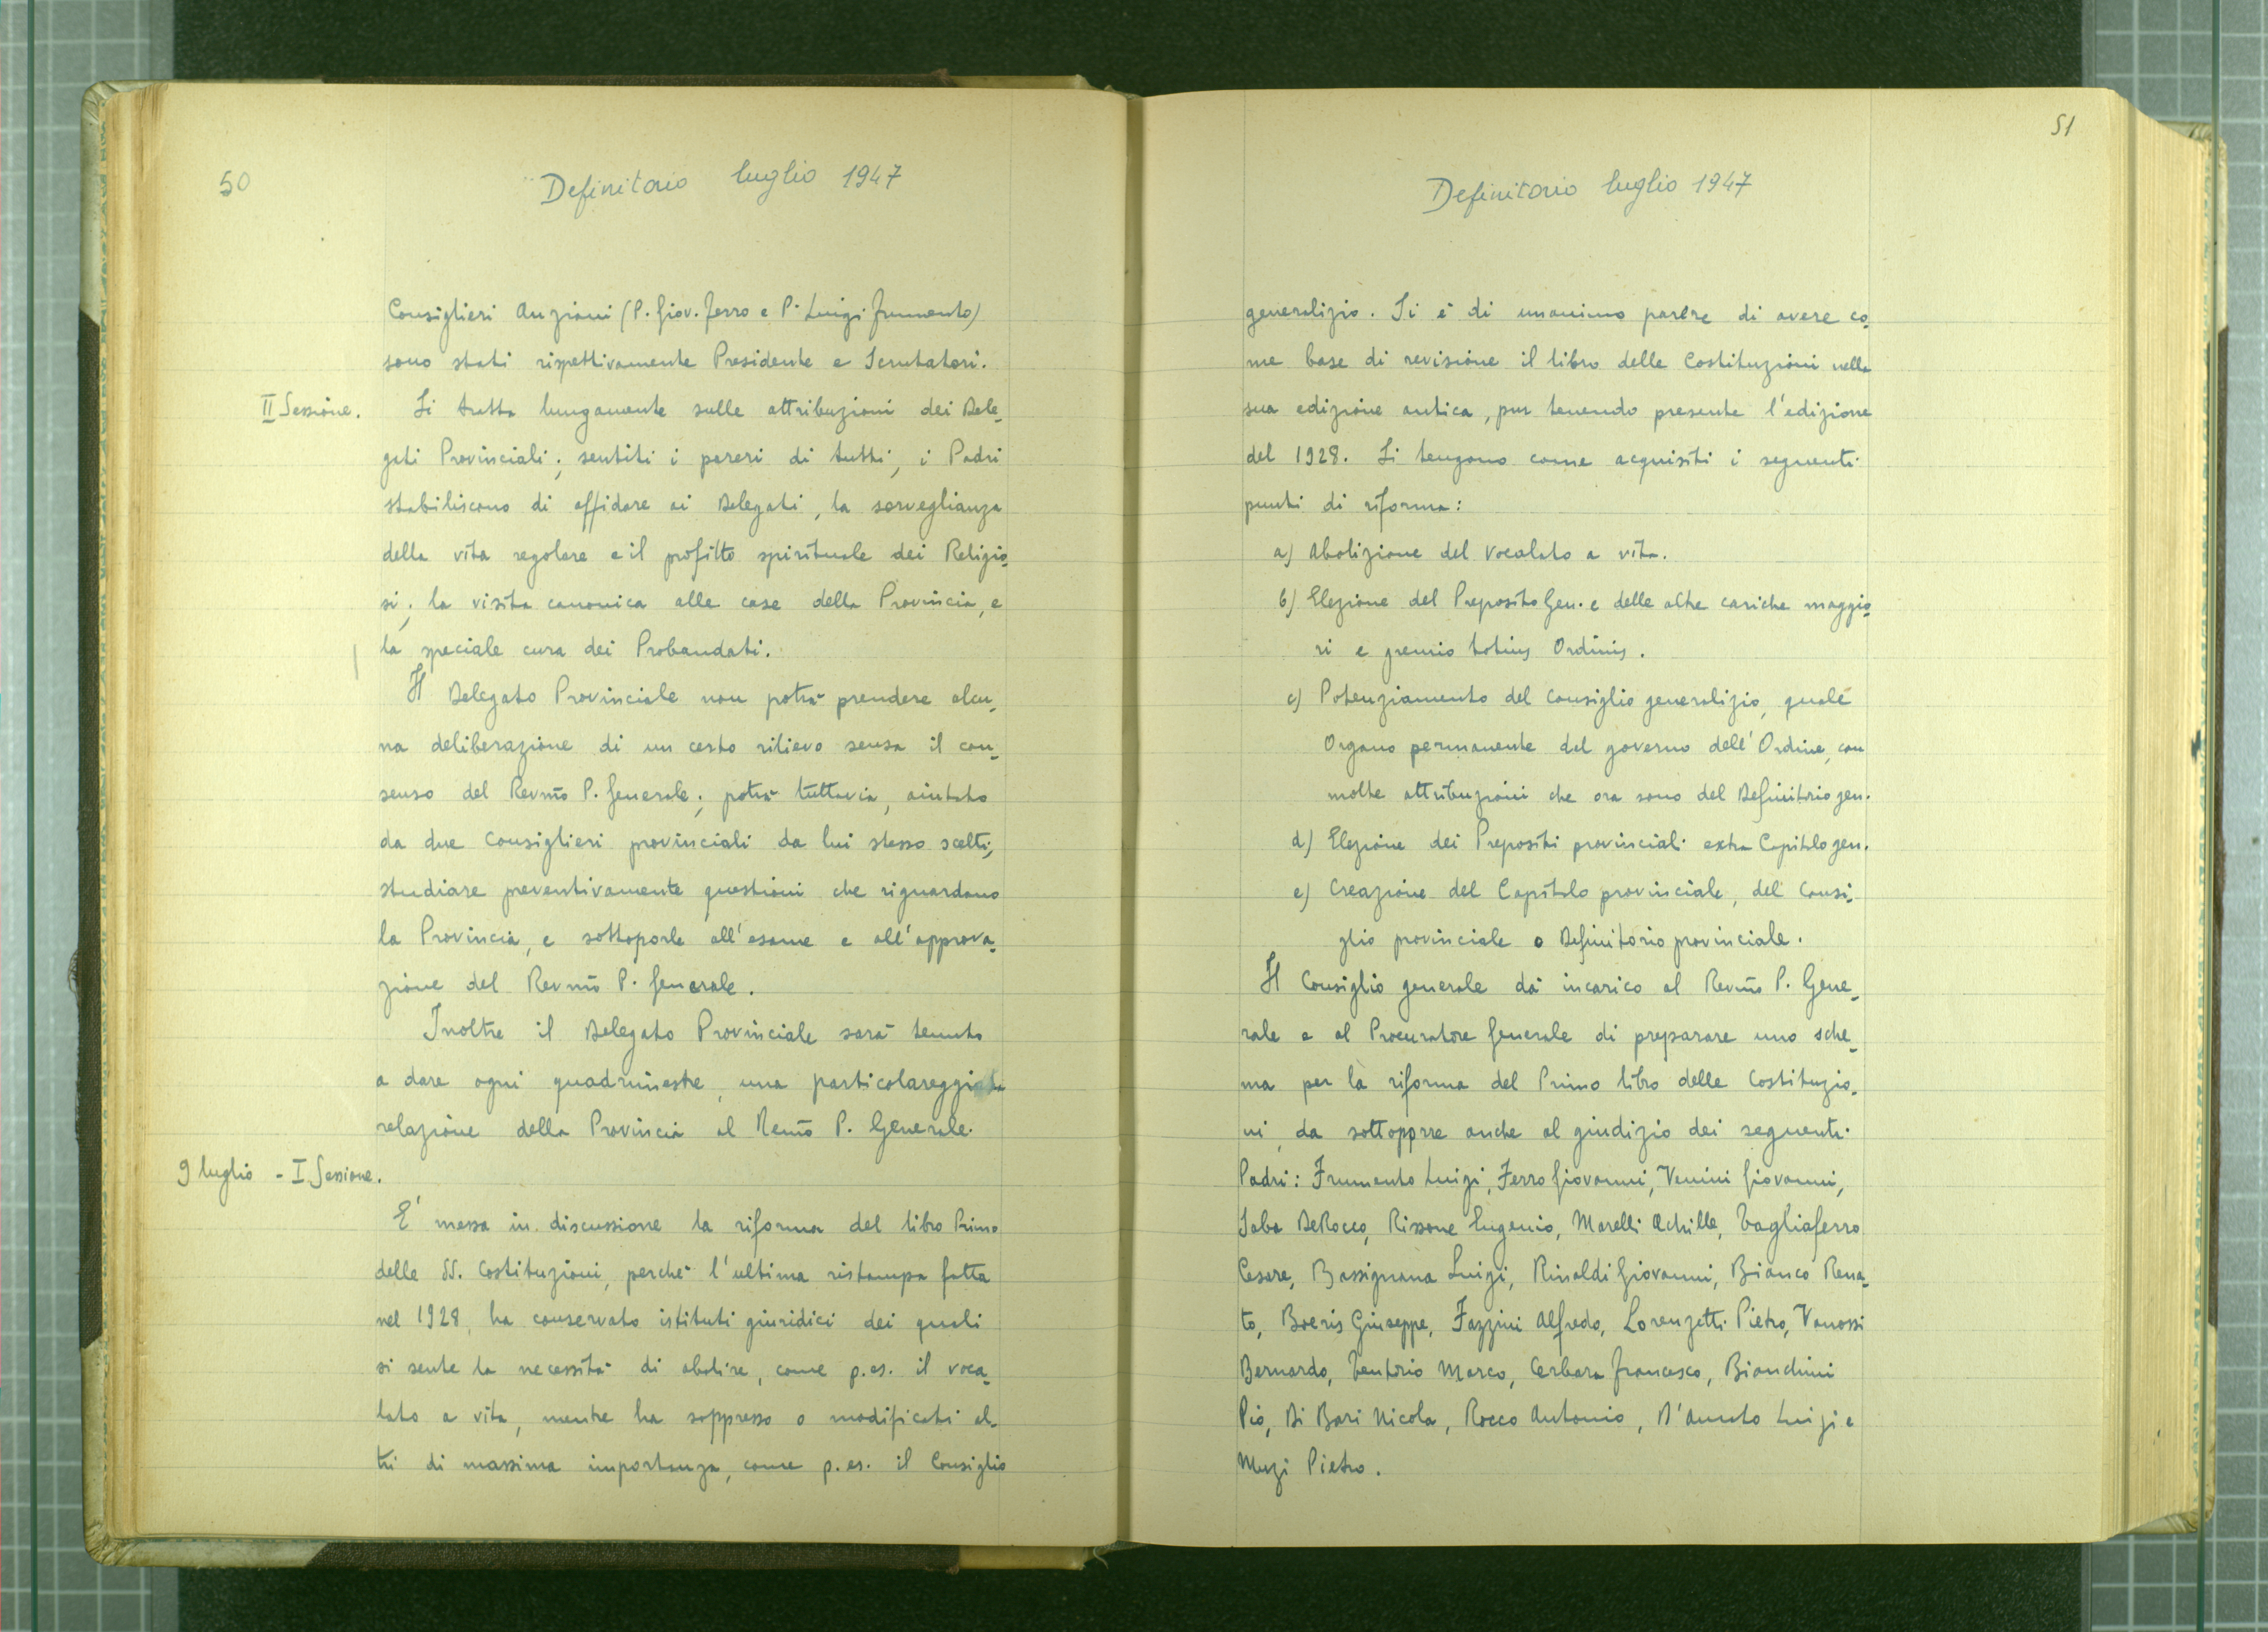 50
Definitorio luglio 1947
Consiglieri Anziani (P. Giov. Ferro e P. Luigi Frumento)
sono stati rispettivamente Presidente e Scrutatori.
II Sessione.
Si tratta lungamente sulle attribuzioni dei Dele-
gati Provinciali; sentiti i pareri di tutti, i Padri
stabiliscono di affidare ai Delegati, la sorveglianza
della vita regolare e il profitto spirituale dei Religio-
si; la visita canonica alle case della Provincia, e
la speciale cura dei Probandati.
Il Delegato Provinciale non potrà prendere alcu-
na deliberazione di un certo rilievo sensa il con-
senso del Revmo P. Generale; potrà tuttavia, aiutato
da due Consiglieri provinciali da lui stesso scelti,
studiare preventivamente questioni che riguardano
la Provincia, e sottoporle all'esame e all'approva-
zione del Revmo P. Generale.
Inoltre il Delegato Provinciale sarà tenuto
a dare ogni quadrimestre, una particolareggiata
relazione della Provincia al Revmo P. Generale.
9 luglio - I Sessione.
E' messa in discussione la riforma del libro Primo
delle SS. Costituzioni, perché l'ultima ristampa fatta
nel 1928, ha conservato istituti giuridici dei quali
si sente la necessità di abolire, come p.es. il voca-
lato a vita, mentre ha soppresso o modificati al-
tri di massima importanza, come p.es. il Consiglio
51
Definitorio luglio 1947
generalizio. Si è di unanimo parere di avere co-
me base di revisione il libro delle Costituzioni nella
sua edizione antica, pur tenendo presente l'edizione
del 1928. Si tengono come acquisiti i seguenti
punti di riforma:
a) Abolizione del vocalato a vita.
b) Elezione del Preposito Gen. e delle altre cariche maggio-
ri e gremio totius Ordinis.
c) Potenziamento del Consiglio generalizio, quale
Organo permanente del governo dell'Ordine, con
molte attribuzioni che ora sono del Definitorio gen.
d) Elezione dei Prepositi provinciali extra Capitolo gen.
e) Creazione del Capitolo provinciale, del Consi-
glio provinciale o Definitorio provinciale.
Il Consiglio generale dà incarico al Revmo P. Gene-
rale e al Procuratore Generale di preparare uno sche-
ma per la riforma del Primo libro delle Costituzio-
ni, da sottoporre anche al giudizio dei seguenti
Padri: Frumento Luigi, Ferro Giovanni, Venini Giovanni,
Saba DeRocco, Rissone Eugenio, Marelli Achille, Tagliaferro
Cesare, Bassignana Luigi, Rinaldi Giovanni, Bianco Rena-
to, Boeris Giuseppe, Fazzini Alfredo, Lorenzetti Pietro, Vanossi
Bernardo, Tentorio Marco, Cerbara Francesco, Bianchini
Pio, Di Bari Nicola, Rocco Antonio, D'Amato Luigi e
Muzi Pietro.